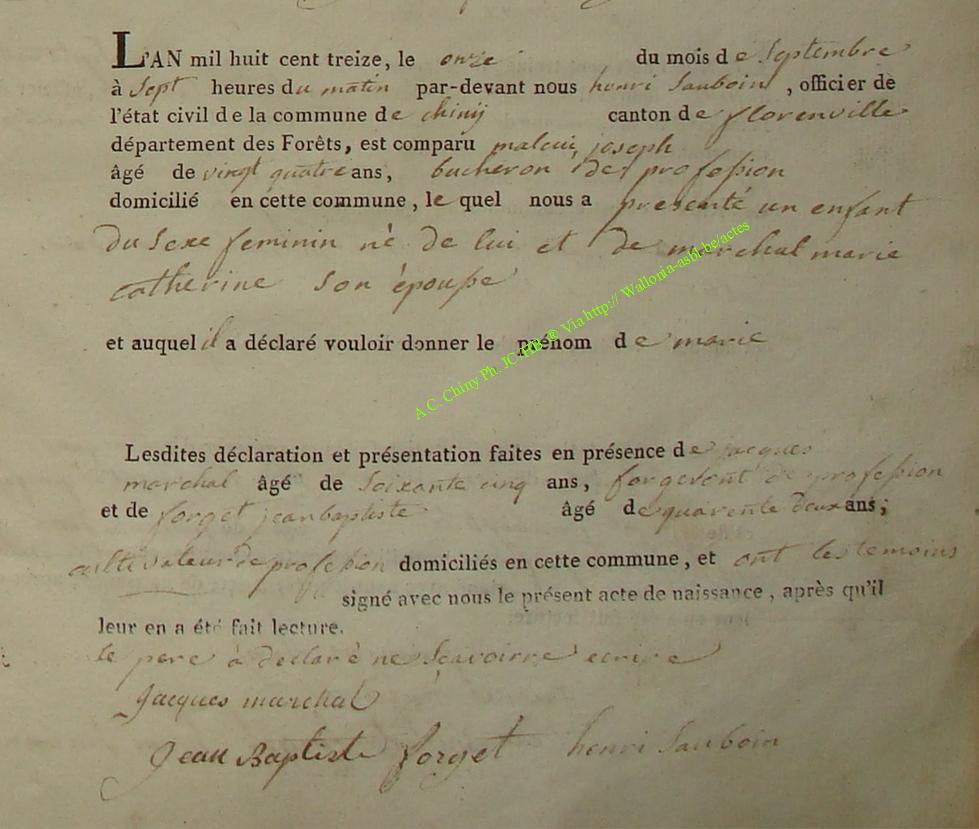 L'AN mil huit cent treize, le onze du mois de Septembre
à Sept heures du matin par-devant nous henri Sauboin, officier de
l'état civil de la commune de chinij canton de florenville
département des Forêts, est comparu joseph
âgé de vingt quatre ans, bucheron de profession
domicilié en cette commune, le quel nous a presenté un enfant
du Sexe feminin né de lui et de marchal marie
catherine son épouse
et auquel il a déclaré vouloir donner le prénom de marie
A.C. Chiny Ph. JC HB ® Via http:// Wallonia-asbl-be/actes
Lesdites déclaration et présentation faites en présence de jacques
marchal âgé de Soixante cinq ans, forgeront de profession
et de forget jean baptiste âgé de quarente deux ans;
cultivateur de profession domiciliés en cette commune, et ont les temoins
signé avec nous le présent acte de naissance, après qu'il
leur en a été fait lecture.
le pere à declaré ne Sçavoirre ecrire
Jacques marchal
Jean Baptiste forget henri Sauboin